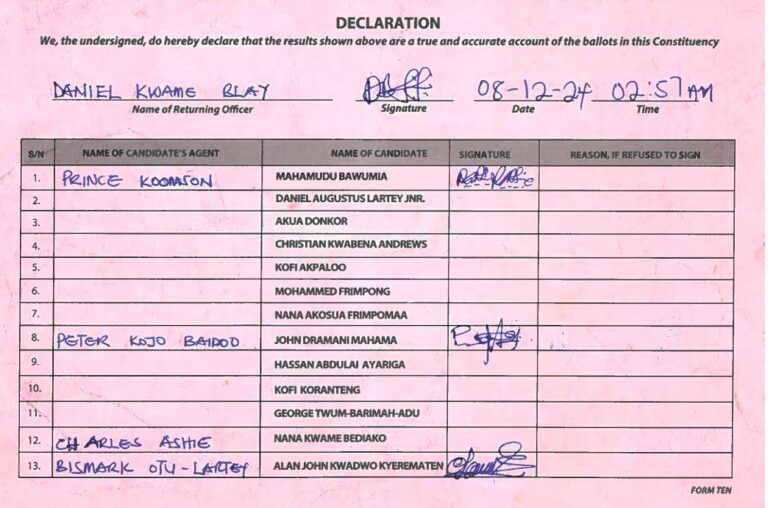 DECLARATION
We, the undersigned, do hereby declare that the results shown above are a true and accurate account of the ballots in this Constituency
DANIEL KWAME BLAY 08-12-24 02:57 AM
Name of Returning Officer Signature Date Time
S/N NAME OF CANDIDATE'S AGENT NAME OF CANDIDATE SIGNATURE REASON, IF REFUSED TO SIGN
1. PRINCE KOOMSON MAHAMUDU BAWUMIA
2. DANIEL AUGUSTUS LARTEY JNR.
3. AKUA DONKOR
4. CHRISTIAN KWABENA ANDREWS
5. KOFI AKPALOO
6. MOHAMMED FRIMPONG
7. NANA AKOSUA FRIMPOMAA
8. PETER KOJO BAIDOO JOHN DRAMANI MAHAMA
9. HASSAN ABDULAI AYARIGA
10. KOFI KORANTENG
11. GEORGE TWUM-BARIMAH-ADU
12. CHARLES ASHIE NANA KWAME BEDIAKO
13. BISMARK OTU-LARTEY ALAN JOHN KWADWO KYEREMATEN
FORM TEN